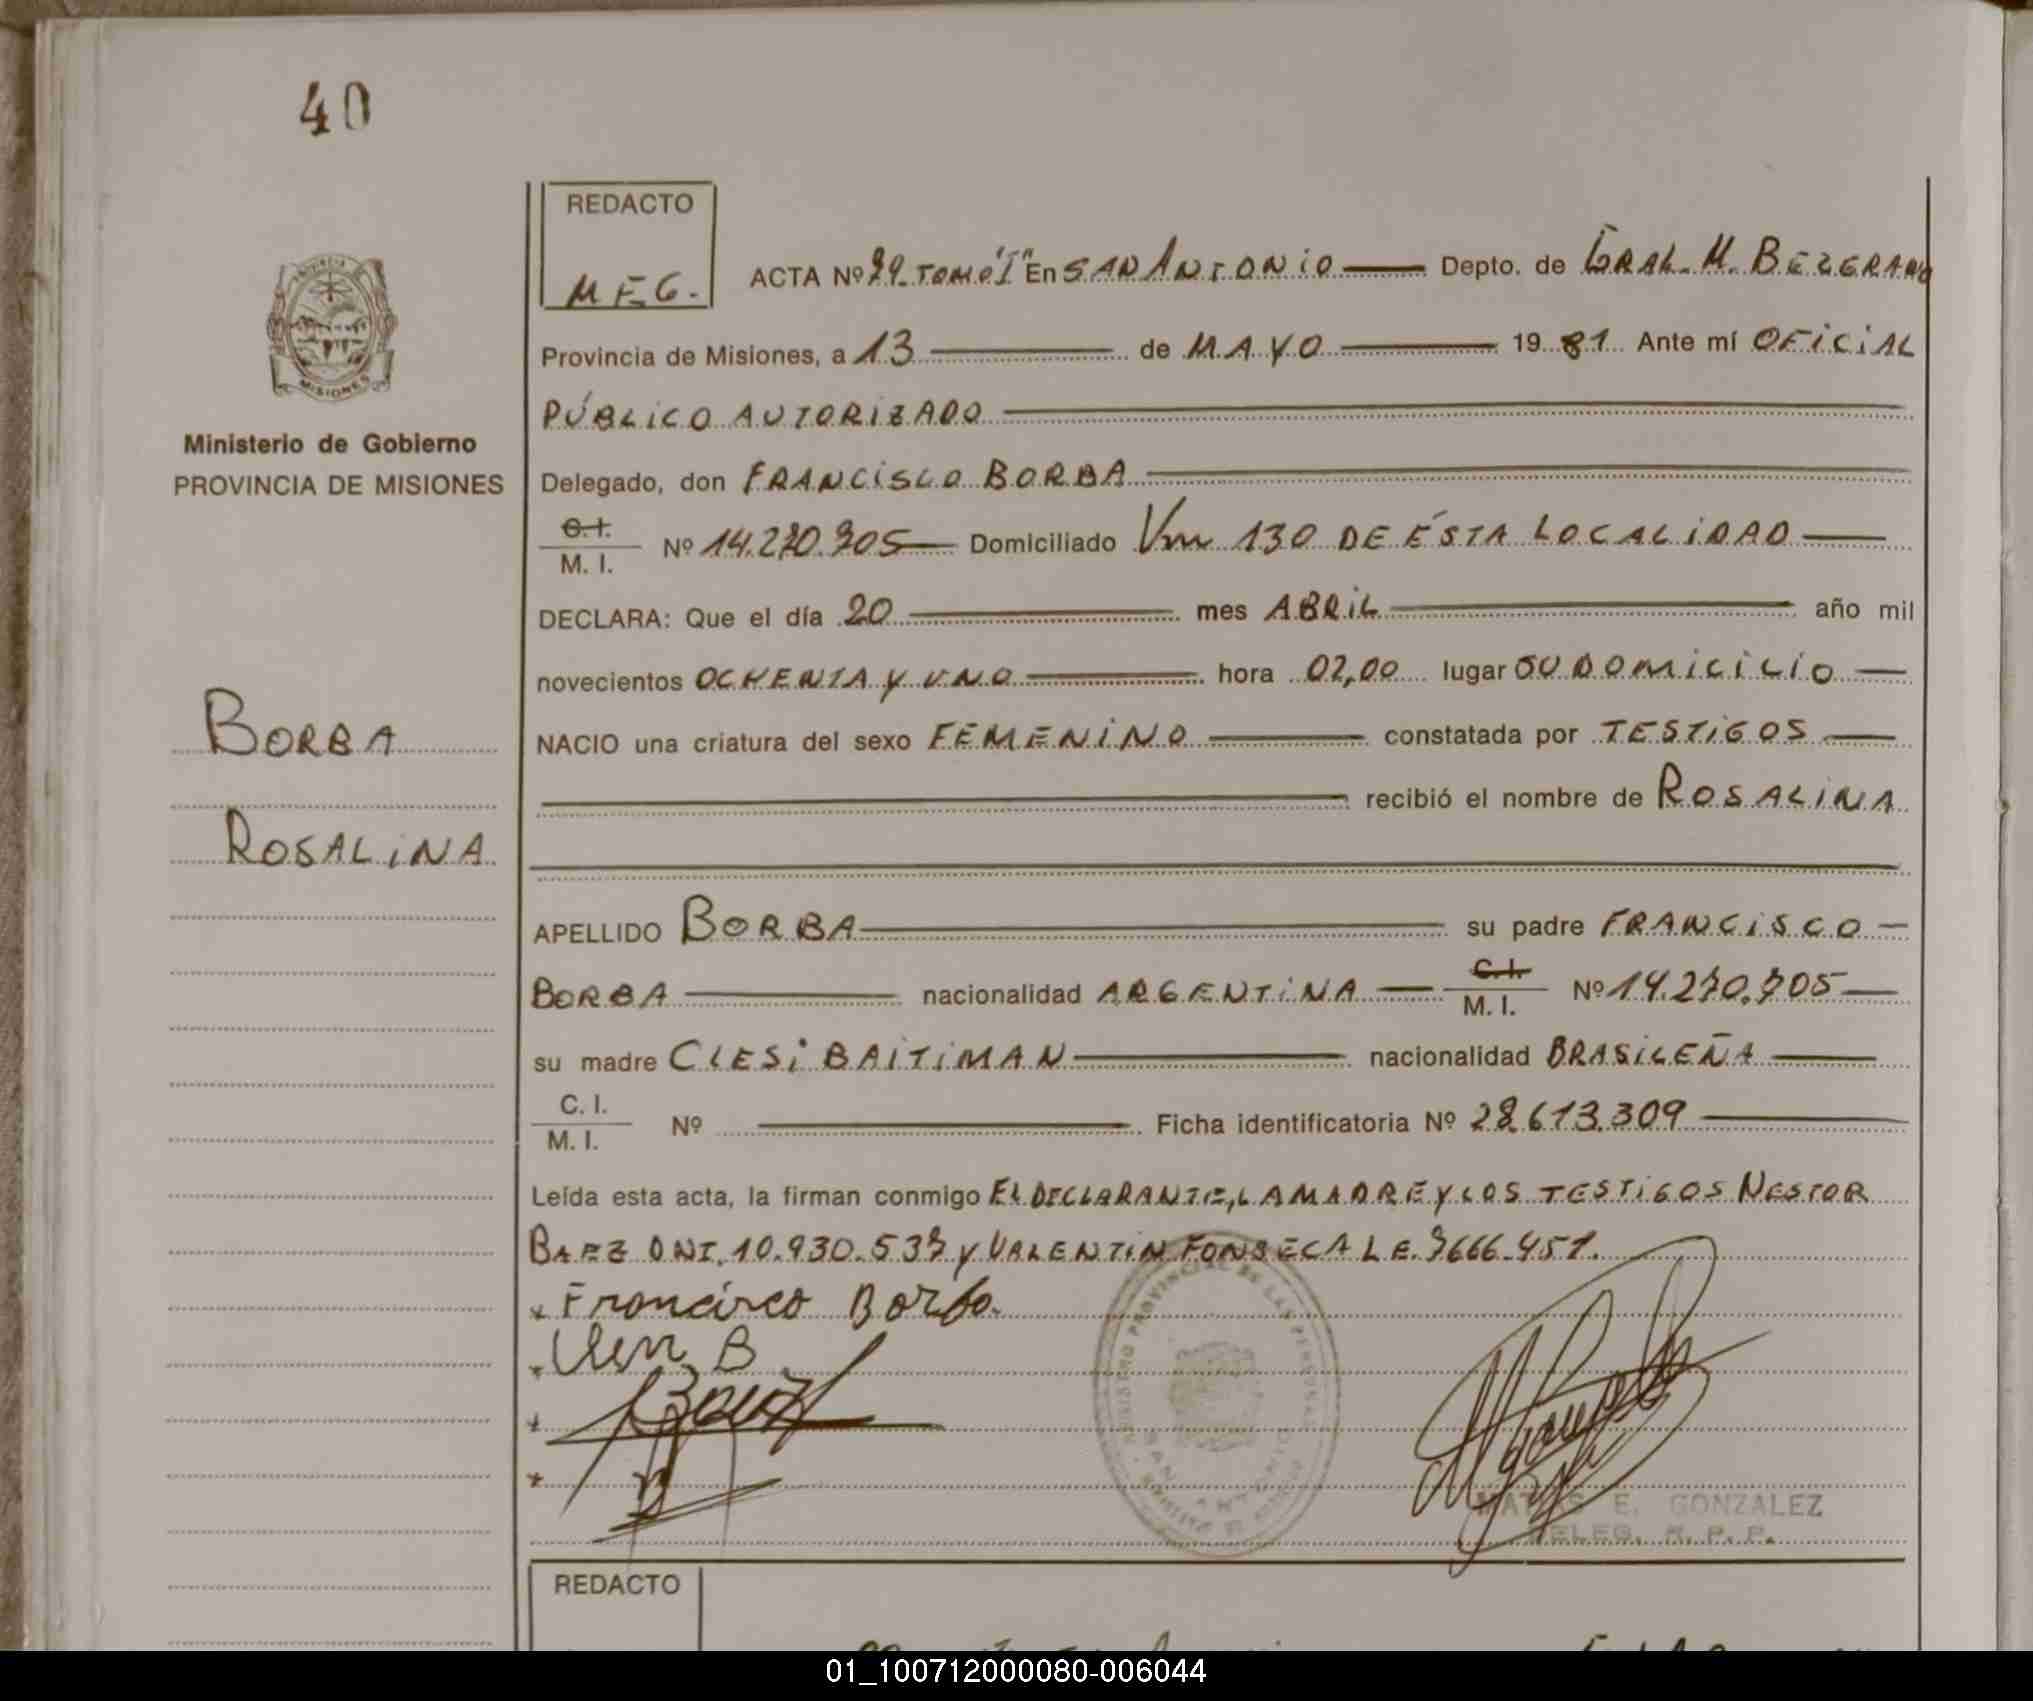 40
REDACTO
M E G.
ACTA Nº 79 TOMO "I" En SAN ANTONIO Depto. de GRAL. M. BELGRANO
PROVINCIA DE MISIONES
Provincia de Misiones, a 13 de MAYO 1981 Ante mí OFICIAL
PÚBLICO AUTORIZADO
Ministerio de Gobierno
PROVINCIA DE MISIONES
Delegado, don FRANCISCO BORBA
C.I.
M. I. Nº 14.270.705 Domiciliado Km 130 DE ÉSTA LOCALIDAD
DECLARA: Que el día 20 mes ABRIL año mil
novecientos OCHENTA Y UNO hora 02,00 lugar SU DOMICILIO
BORBA
NACIO una criatura del sexo FEMENINO constatada por TESTIGOS
recibió el nombre de ROSALINA
ROSALINA
APELLIDO BORBA su padre FRANCISCO
BORBA nacionalidad ARGENTINA C.I. M. I. Nº 14.270.705
su madre CLESI BAITIMAN nacionalidad BRASILEÑA
C. I.
M. I. Nº Ficha identificatoria Nº 28.613.309
Leída esta acta, la firman conmigo EL DECLARANTE, LA MADRE Y LOS TESTIGOS NESTOR
BAEZ DNI. 10.930.537 Y VALENTIN FONSECA L E. 7666.451.
x Francisco Borba.
REGISTRO PROVINCIAL DE LAS PERSONAS
SAN ANTONIO
MATIAS E. GONZALEZ
DELEG. R. P. P.
REDACTO
01_100712000080-006044